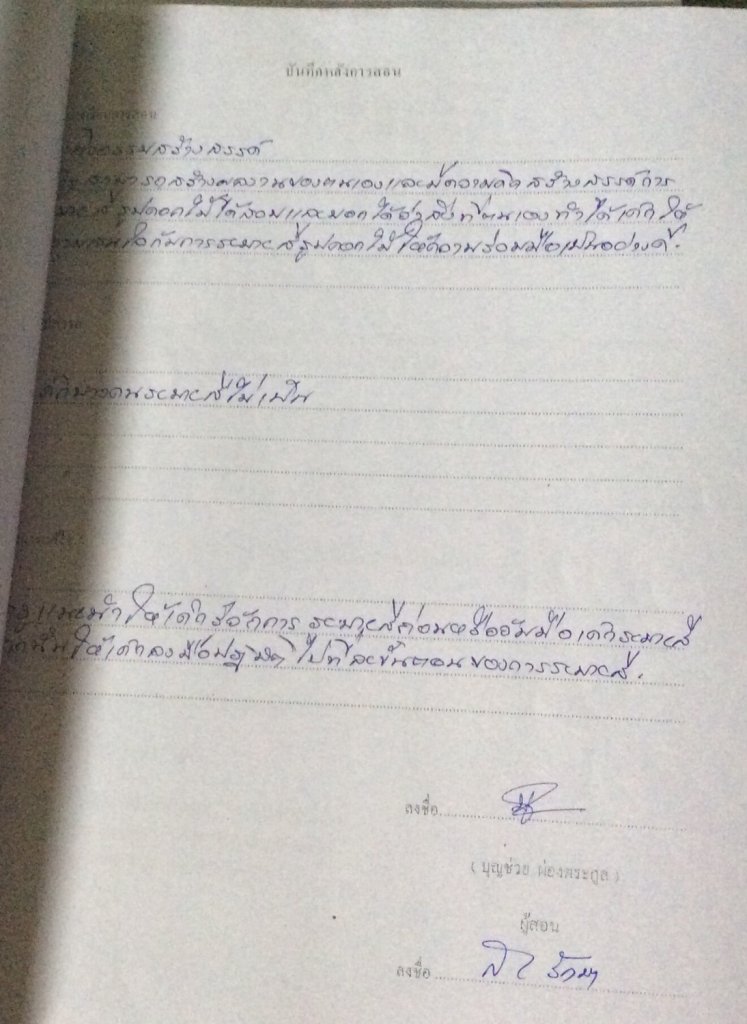 บันทึกหลังการสอน
สอน
กิจกรรมสร้างสรรค์
สามารถสร้างผลงานของตนเองและมีความคิดสร้างสรรค์การ
รูปดอกไม้ได้สวยและบอกได้ว่าสิ่งที่ตนเองทำได้เด็กให้
กับการระบายสีรูปดอกไม้ให้ความร่วมมือเป็นอย่างดี.
บางคนระบายสีไม่เป็น
แนะนำให้เด็กรู้จักการระบายสีก่อนหรือจับมือเด็กระบายสี
ให้เด็กลงมือปฏิบัติไปทีละขั้นตอนของการระบายสี.
ลงชื่อ
( บุญช่วย ผ่องตระกูล )
ผู้สอน
ลงชื่อ